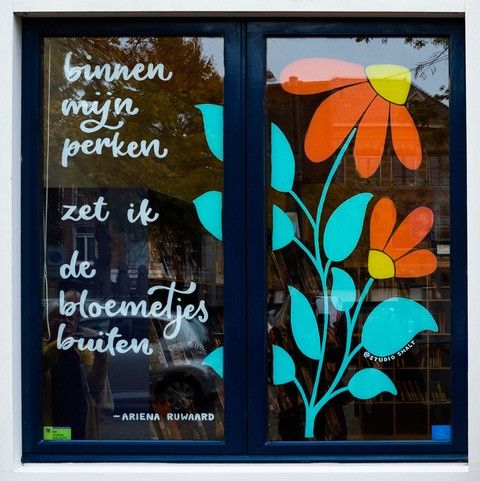 binnen
mijn
perken
zet ik
de
bloemetjes
buiten
—ARIENA RUWAARD
@STUDIO SMALT